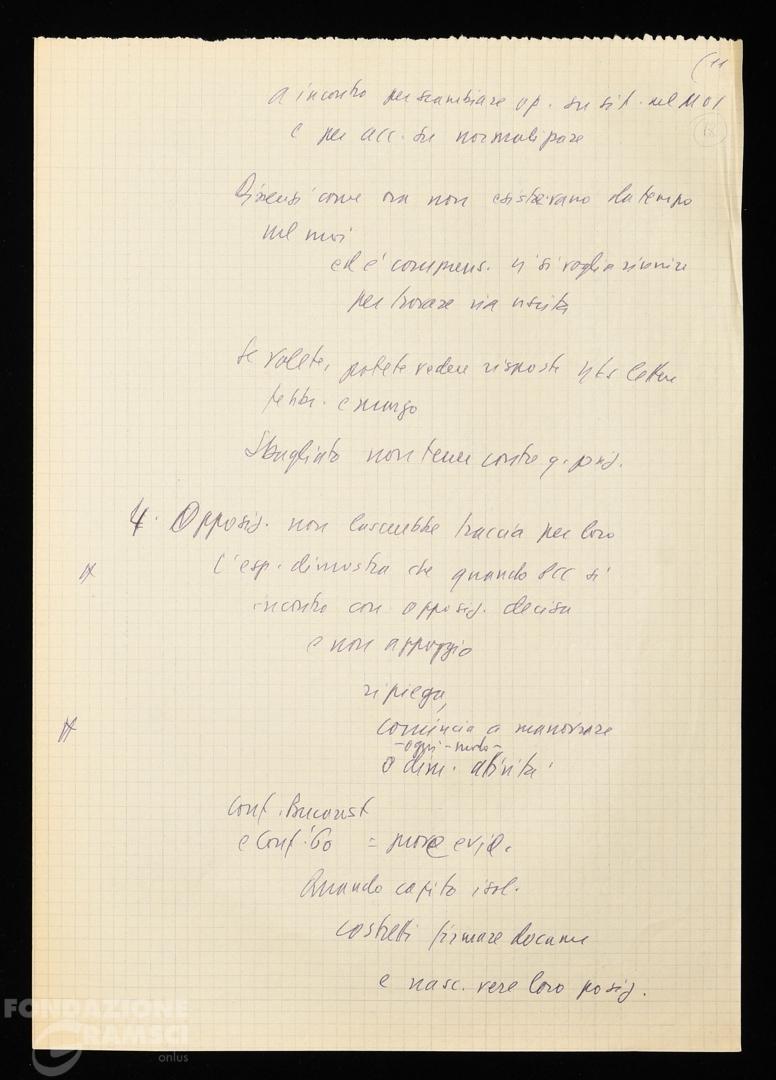 (11
18
a incontro per scambiare op. su sit. nel MOI
e per acc. su normalizzare
Dissensi come ora non esistevano da tempo
nel moi
ed è comprens. si voglia riunire
per trovare via uscita
Se volete, potete vedere risposte lettere
febbr. e marzo
Sbagliato non tener conto q. posiz.
4. Opposiz. non lascerebbe traccia per loro
L'esp. dimostra che quando PCC si
incontra con opposiz. decisa
e non appoggio
ripiega,
comincia a manovrare
- ogni - modo -
o dim. attività.
Conf. Bucarest
e Conf. '60 = prove evid.
Quando capito isol.
costretti firmare docum
e nasc. vere loro posiz.
FONDAZIONE
GRAMSCI
onlus